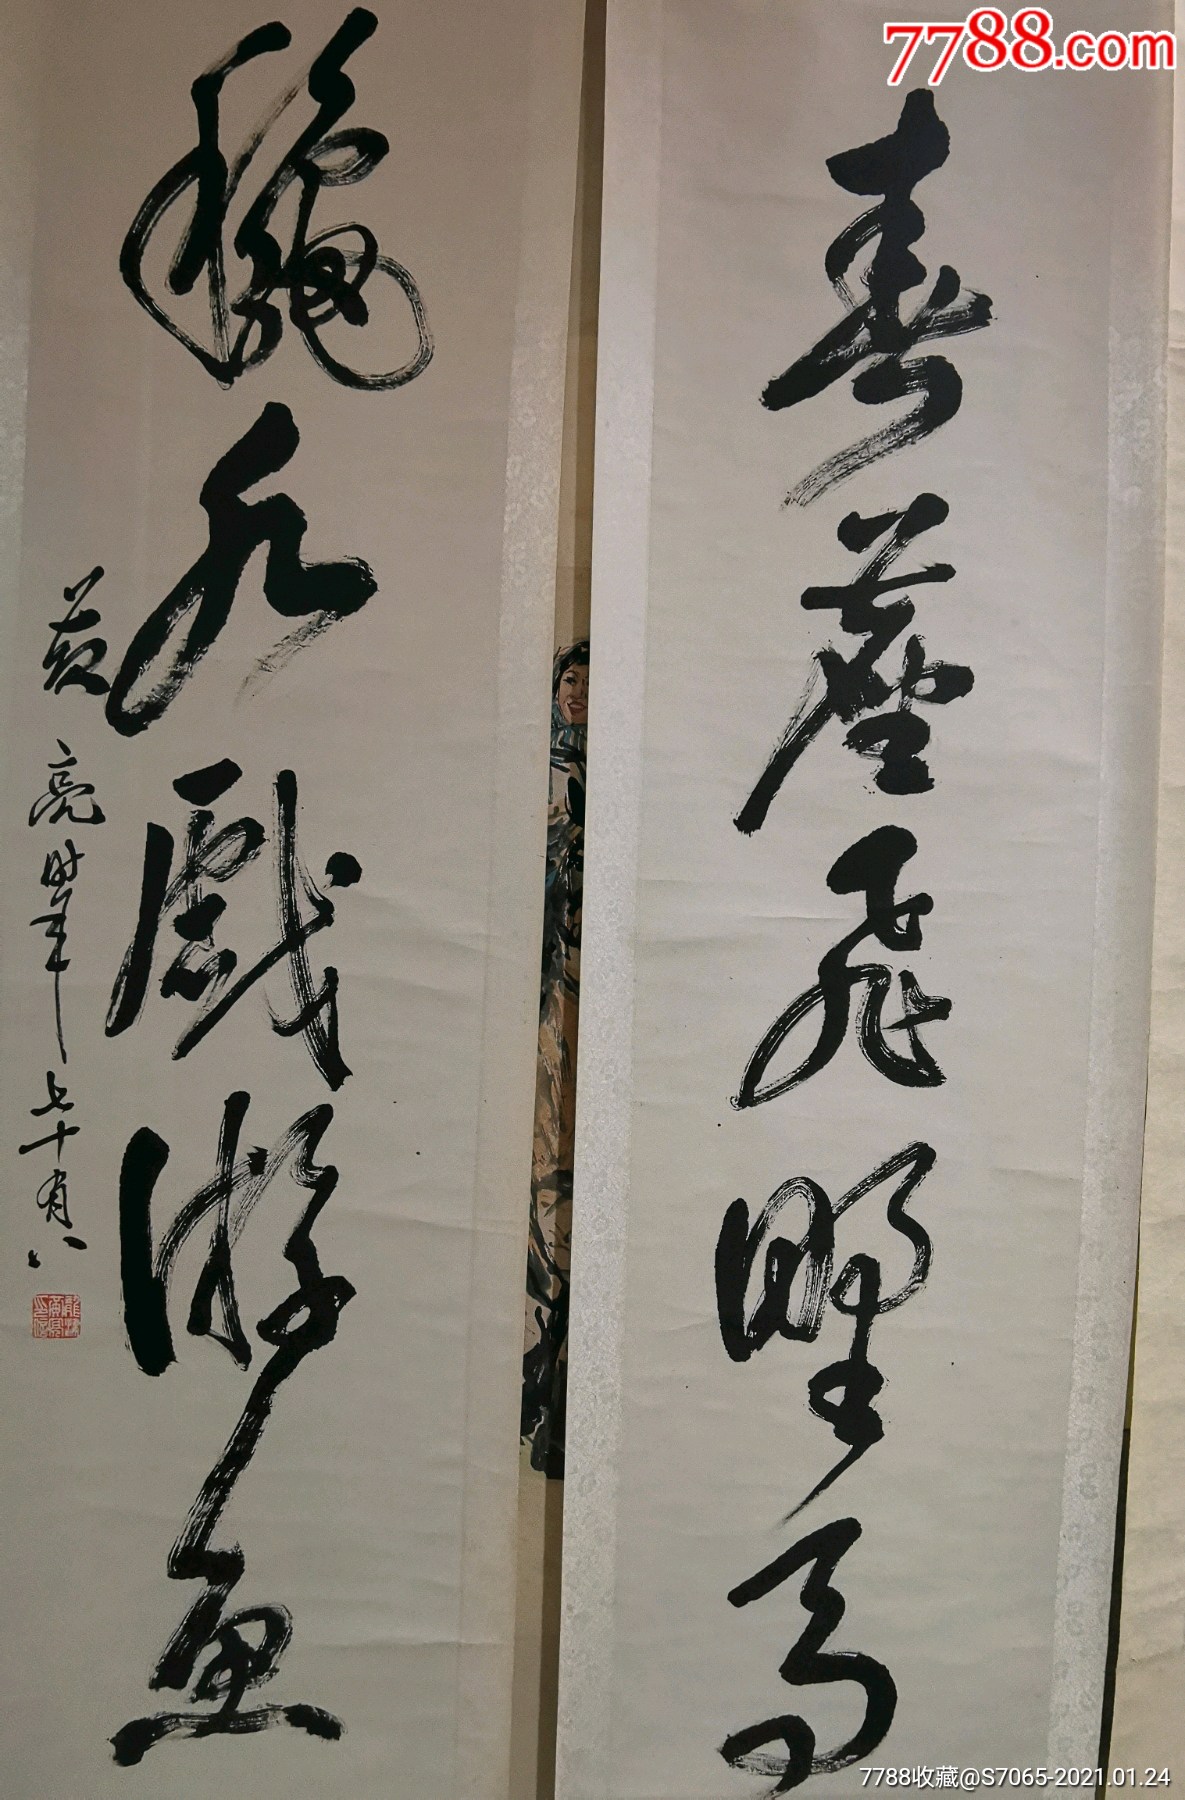 7788.com
春塵飛野馬
龝水戲游魚
黄亮時年七十有八
7788收藏@S7065-2021.01.24